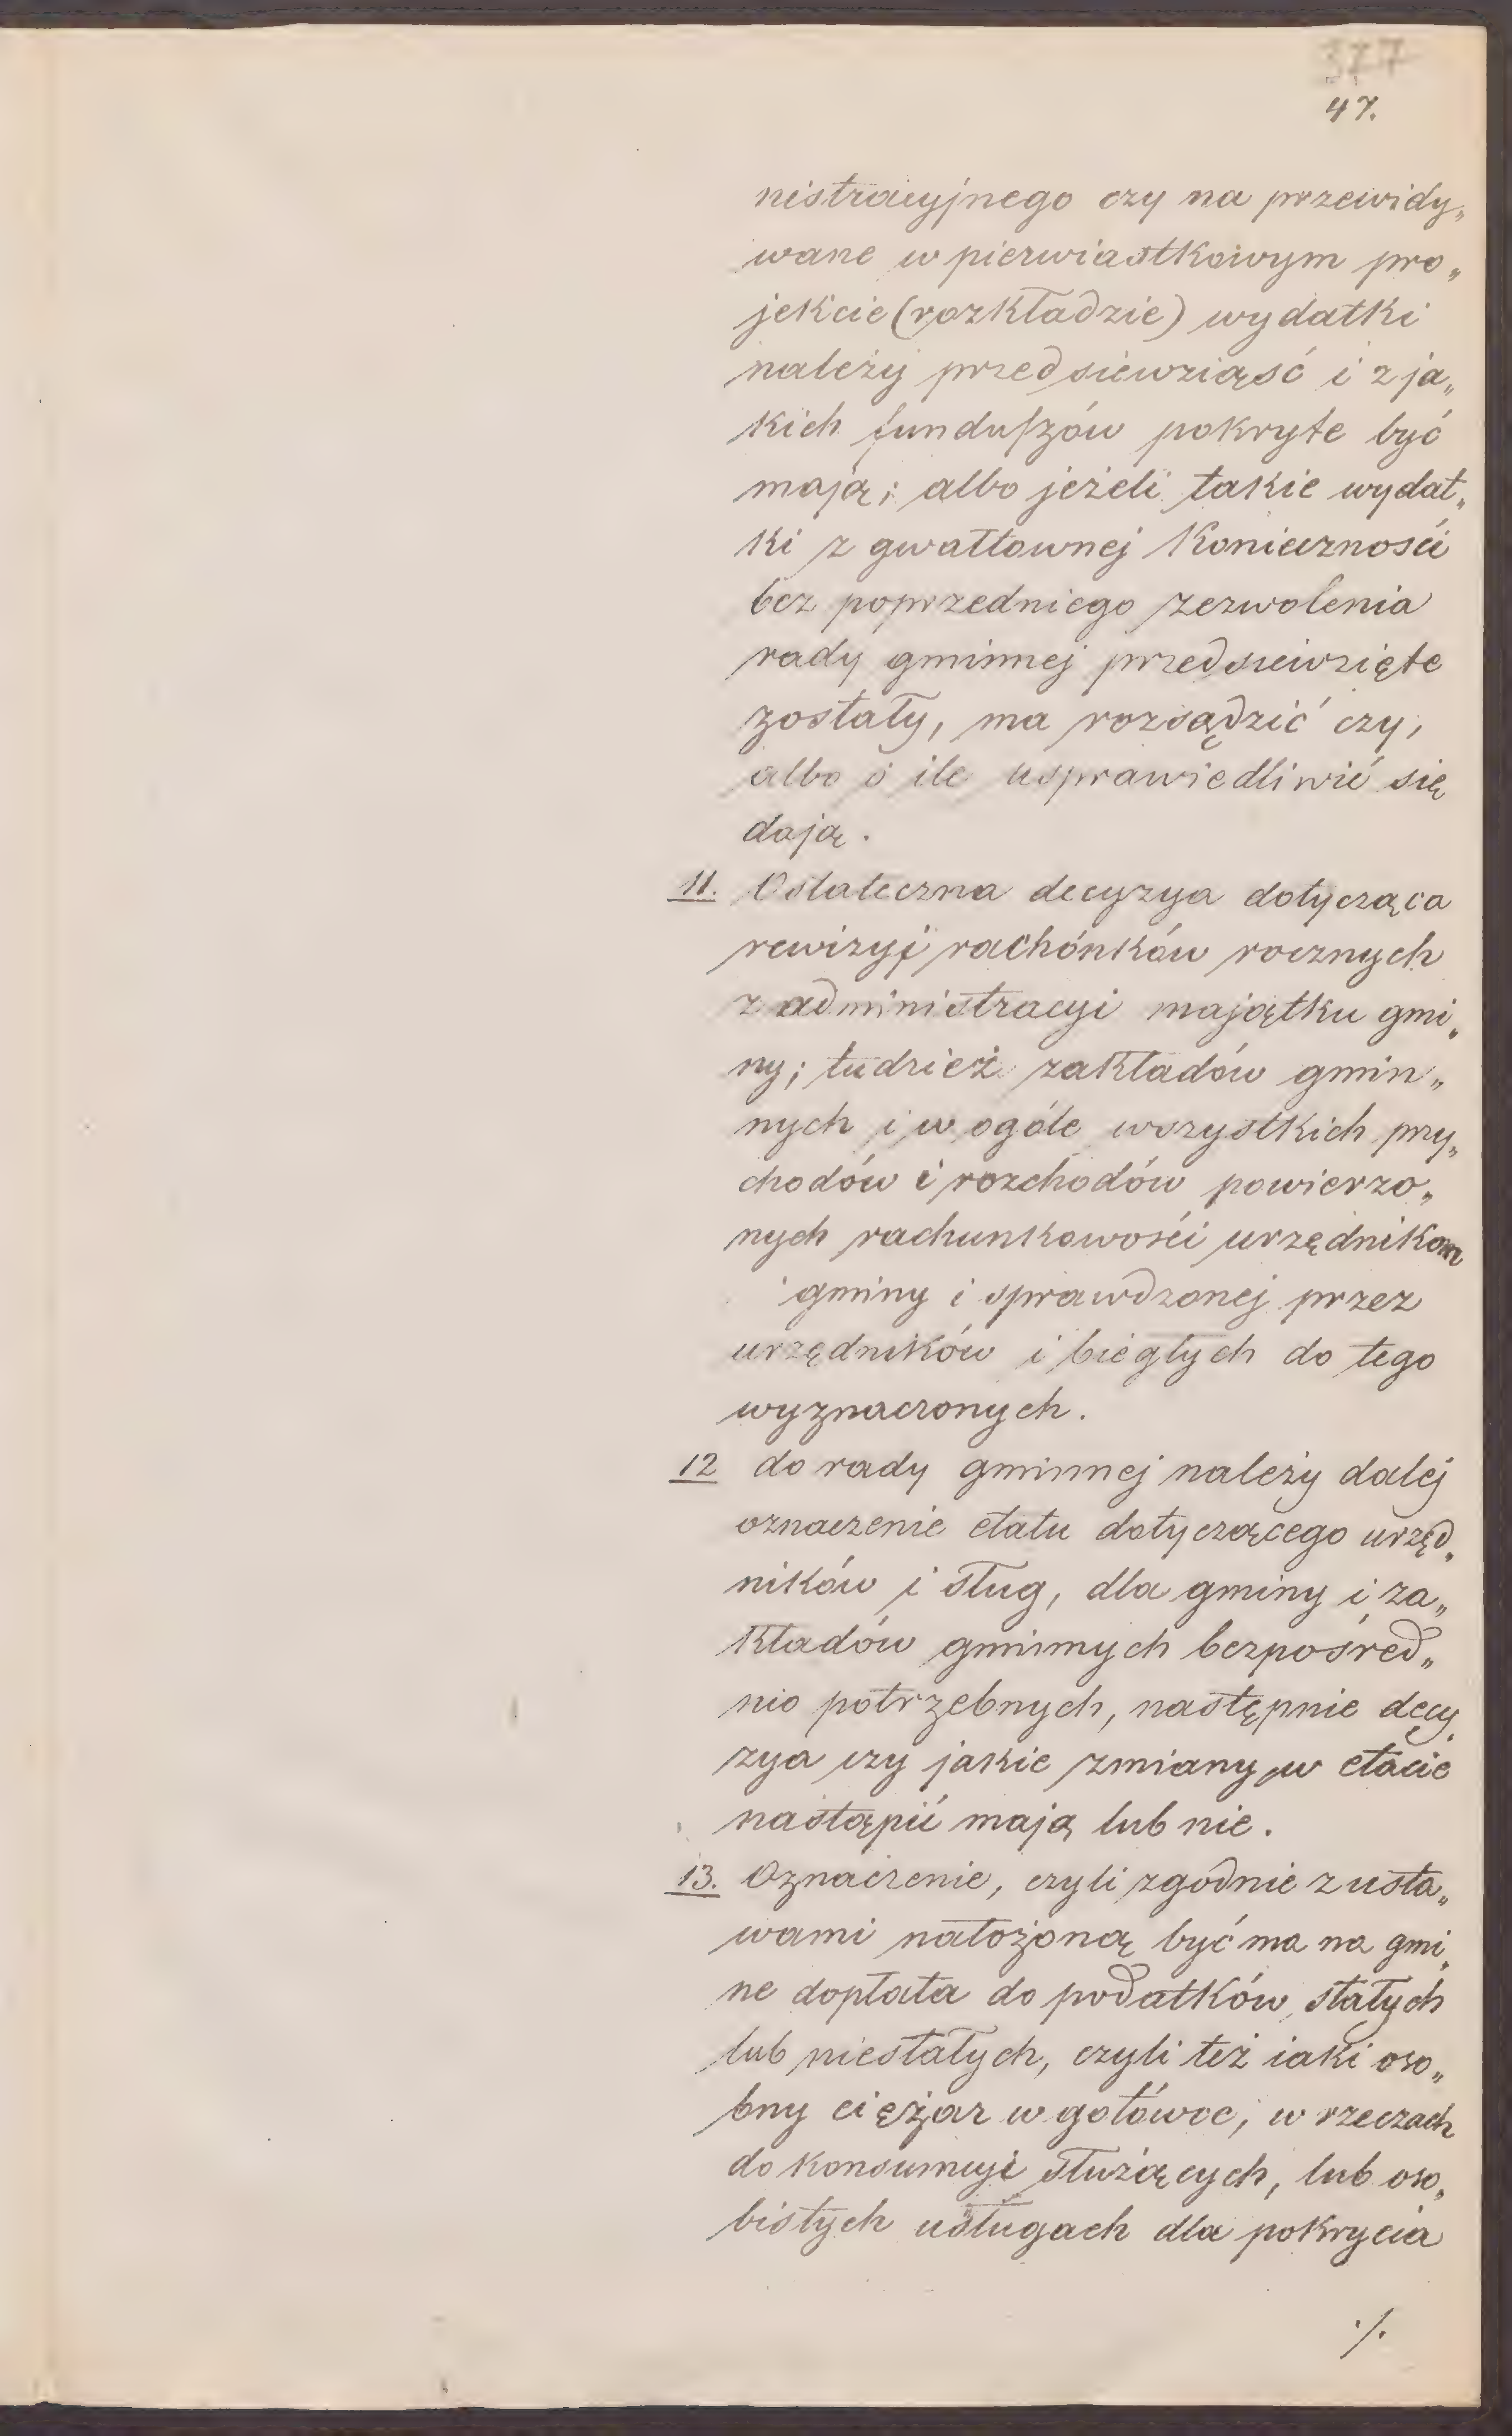 377
47.
nistracyjnego czy na przewidy„
wane w pierwiastkowym pro„
jekcie (rozkładzie) wydatki
należy przedsiewziąść i z ja„
kich funduſzów pokryte być
mają; albo jeżeli takie wydat„
ki z gwałtownej Konieczności
bez poprzedniego zezwolenia
rady gminnej przedsiewzięte
zostały, ma rozsądzić czy,
albo o ile usprawiedliwić się
dają.
11. Ostateczna decyzya dotycząca
rewizyi rachónków rocznych
z administracyi majątku gmi„
ny; tudzież zakładów gmin„
nych i w ogóle wszystkich przy„
chodów i rozchodów powierzo„
nych rachunkowości urzędnikom
gminy i sprawdzonej przez
urzędników i biegłych do tego
wyznaczonych.
12 do rady gminnej należy dalej
oznaczenie etatu dotyczącego urzęd„
ników i sług, dla gminy i za„
kładów gminnych bezpośred„
nio potrzebnych, następnie decy„
zya czy jakie zmiany w etacie
nastąpić mają lub nie.
13. Oznaczenie, czyli zgodnie z usta„
wami nałożoną być ma na gmi„
ne dopłata do podatków stałych
lub niestałych, czyli też iaki oso„
bny ciężar w gotówce, w rzeczach
do konsumcyi służących, lub oso„
bistych usługach dla pokrycia
./.